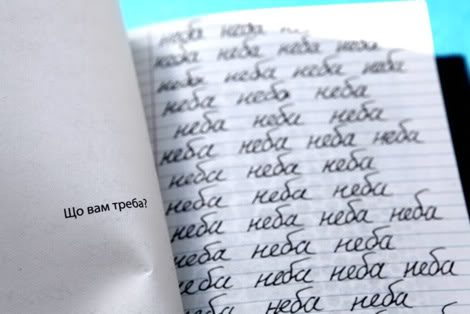 Що вам треба?
неба неба
неба неба неба неба
неба неба неба неба
неба неба неба
неба неба неба
неба неба неба неба
неба неба неба
неба неба неба
неба неба неба неба
неба неба неба
неба неба неба неба
неба неба